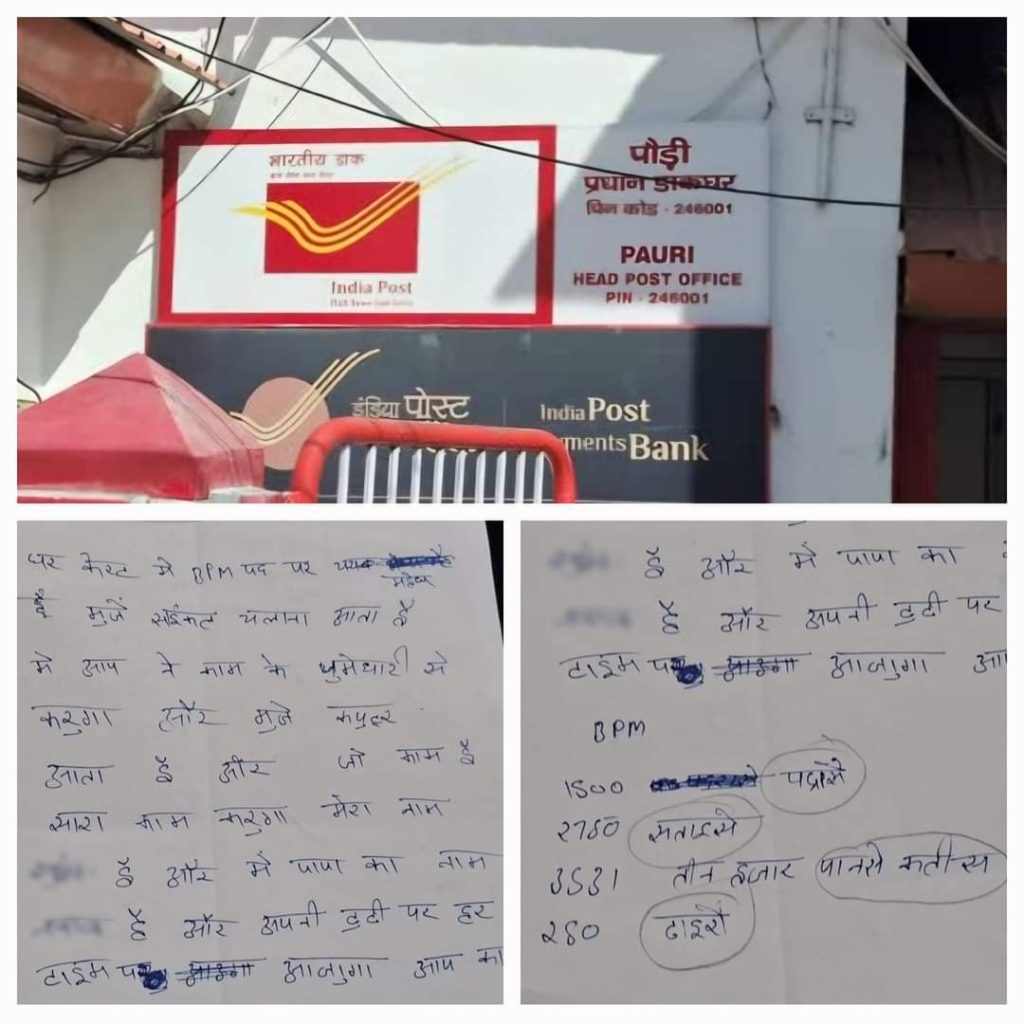 भारतीय डाक
India Post
पौड़ी
प्रधान डाकघर
पिन कोड - 246001
PAURI
HEAD POST OFFICE
PIN - 246001
इंडिया पोस्ट
India Post
ments Bank
पर केस्ट मे BPM पद पर
है मुजें साईकल चलाना आता है
मे आप ने काम के धुमेधारी से
करुगा और मुजे कपुटर
आता है और जो काम है
सारा काम करुगा मेरा नाम
है और मैं पापा का नाम
है और अपनी डुटी पर हर
टाइम पर आजुगा आप का
है और मैं पापा का
है और अपनी डुटी पर
टाइम पर आजुगा आप
BPM
1500 पद्रासै
2750 सताइसे
3531 तीन हजार पानसे कतीस
250 ढाइसै